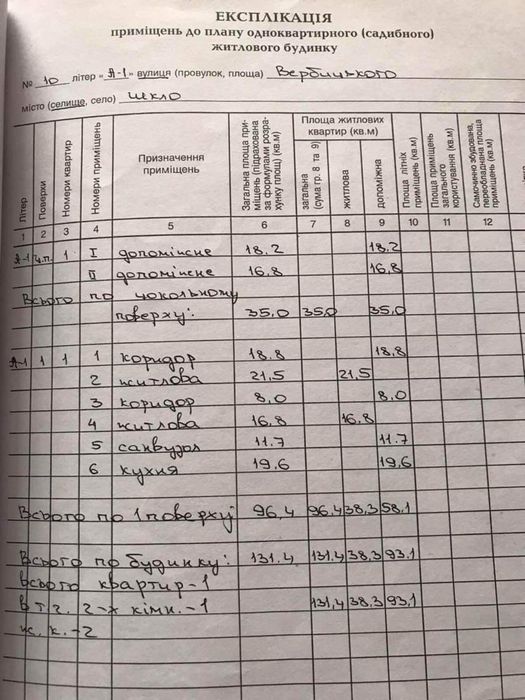 ЕКСПЛІКАЦІЯ
приміщень до плану одноквартирного (садибного)
житлового будинку
№ 10 літер « А-1 » вулиця (провулок, площа) Вербицького
місто (селище, село) Шкло
Літер
Поверхи
Номери квартир
Номери приміщень
Призначення приміщень
Загальна площа приміщень (підрахована за формулами розрахунку площ) (кв.м)
Площа житлових квартир (кв.м)
загальна (сума гр. 8 та 9)
житлова
допоміжна
Площа літніх приміщень (кв.м)
Площа приміщень загального користування (кв.м)
Самочинно збудована, переобладнана площа приміщень (кв.м)
1 2 3 4 5 6 7 8 9 10 11 12
А-1 ц.п. 1 I допоміжне 18.2 18.2
II допоміжне 16.8 16.8
Всього по цокольному
поверху: 35.0 35,0 35,0
А-1 1 1 1 коридор 18.8 18.8
2 житлова 21,5 21,5
3 коридор 8,0 8,0
4 житлова 16.8 16.8
5 санвузол 11.7 11.7
6 кухня 19.6 19.6
Всього по 1 поверху: 96.4 96.4 38,3 58,1
Всього по будинку: 131.4 131,4 38,3 93,1
Всього квартир-1
в т.г. 2-х кімн.-1 131,4 38,3 93,1
ж. к.-2